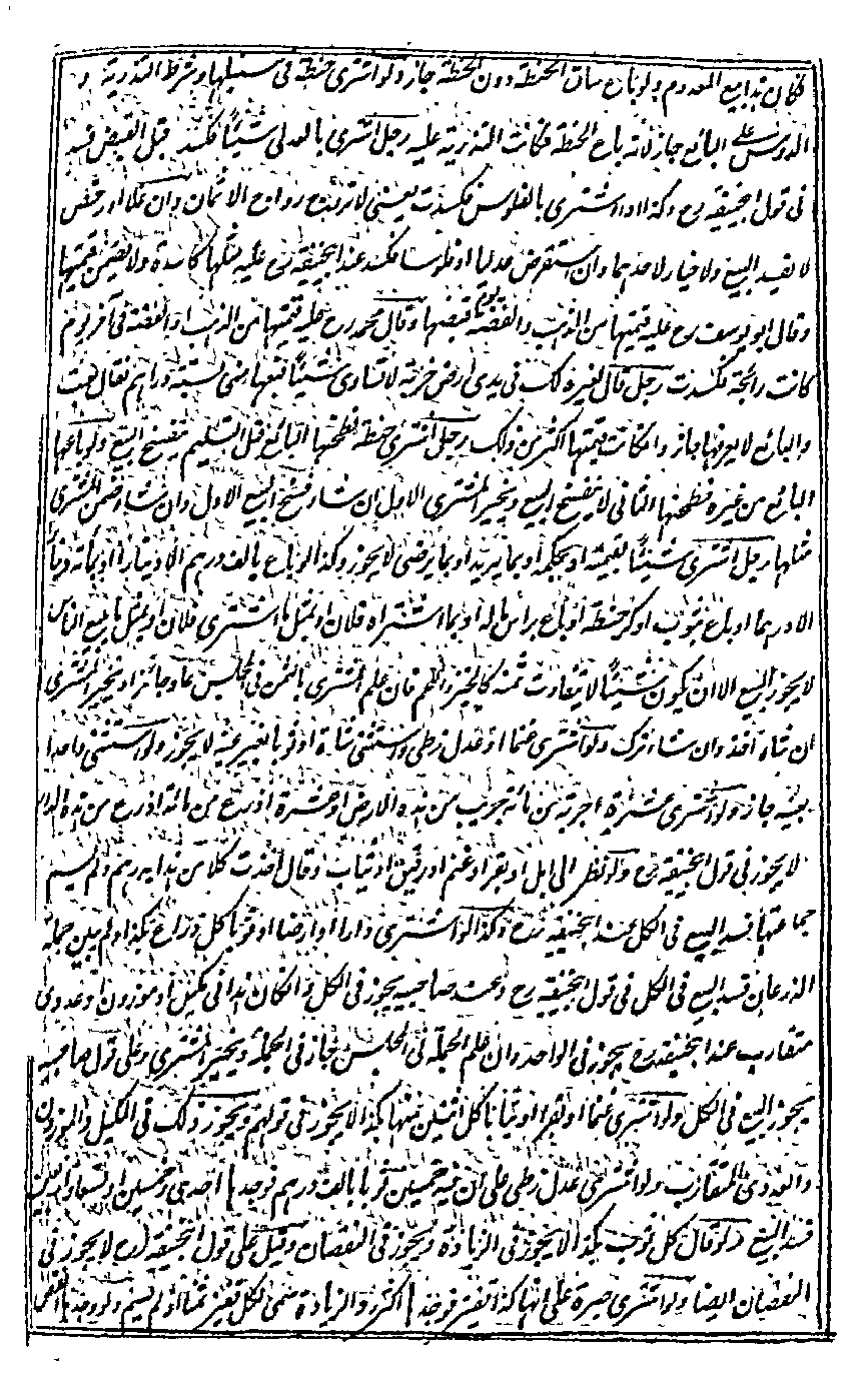 فكان هذا بيع المعدوم ولو باع ساق الحنطة دون الحنطة جاز ولو اشترى حنطة فى سنبلها وشرط التذرية و
الدوس على البائع جاز لانه باع الحنطة فكانت التذرية عليه رجل اشترى بالعدلى شيئا فكسد قبل القبض فسد
فى قول ابيحنيفة رح وكذا لو اشترى بالفلوس فكسدت يعنى لا تروج رواج الاثمان وان غلا او رخص
لا يفسد البيع ولا خيار لاحدهما وان استقرض عدليا او فلوسا فكسد عند ابيحنيفة رح عليه مثلها كاسدة ولا يضمن قيمتها
وقال ابو يوسف رح عليه قيمتها من الذهب والفضة يوم قبضها وقال محمد رح عليه قيمتها من الذهب او الفضة فى آخر يوم
كانت رائجة فكسدت رجل قال لغيره لك فى يدى ارض خربة لا تساوى شيئا فبعها منى بستة دراهم فقال بعت
والبائع لا يعرفها جاز وان كانت قيمتها اكثر من ذلك رجل اشترى حنطة فطحنها البائع قبل التسليم ينفسخ البيع ولو باعها
البائع من غيره فطحنها الثانى لا ينفسخ البيع ويخير المشترى الاول ان شاء فسخ البيع الاول وان شاء ضمن المشترى
مثلها رجل اشترى شيئا بقيمته او بحكمه او بما يريد او بما يرضى لا يجوز وكذا لو باع بالف درهم الا دينارا او بمائة دينار
الا درهما او باع بثوب او كر حنطة او باع براس ماله او بما اشتراه فلان او بمثل ما اشترى فلان او بمثل ما يبيع الناس
لا يجوز البيع الا ان يكون شيئا لا يتفاوت ثمنه كالخبز واللحم فان علم المشترى بالثمن فى المجلس عاد جائزا ويخير المشترى
ان شاء اخذ وان شاء ترك ولو اشترى غنما او عدل زطى واستثنى شاة او ثوبا بغير عينه لا يجوز ولو استثنى واحدا
بعينه جاز ولو اشترى عشرة اجربة من مائة جريب من هذه الارض او عشرة اذرع من مائة اذرع من هذه الدار
لا يجوز فى قول ابيحنيفة رح ولو نظر الى ابل او بقر او غنم او رقيق او ثياب وقال اخذت كلا من هذا بدرهم ولم يسم
جماعتها فسد البيع فى الكل عند ابيحنيفة رح وكذا لو اشترى دارا او ارضا او ثوبا كل ذراع بكذا ولم يبين جملة
الذرعان فسد البيع فى الكل فى قول ابيحنيفة رح وعند صاحبيه يجوز فى الكل وان كان هذا فى مكيل او موزون او عددى
متقارب عند ابيحنيفة رح يجوز فى الواحد وان علم الجملة فى المجلس جاز فى الجملة ويخير المشترى وعلى قول صاحبيه
يجوز البيع فى الكل ولو اشترى غنما او بقرا او ثيابا كل اثنين منها بكذا لا يجوز فى قولهم ويجوز ذلك فى الكيل والموزون
والعددى المتقارب ولو اشترى عدل زطى على ان فيه خمسين ثوبا بالف درهم فوجدها احدى وخمسين او تسعة واربعين
فسد البيع ولو قال كل ثوب بكذا لا يجوز فى الزيادة ويجوز فى النقصان وقيل على قول ابيحنيفة رح لا يجوز فى
النقصان ايضا ولو اشترى صبرة على انها كذا قفيز فوجدها اكثر رد الزيادة سمى لكل قفيز ثمنا او لم يسم ولو وجدها انقص